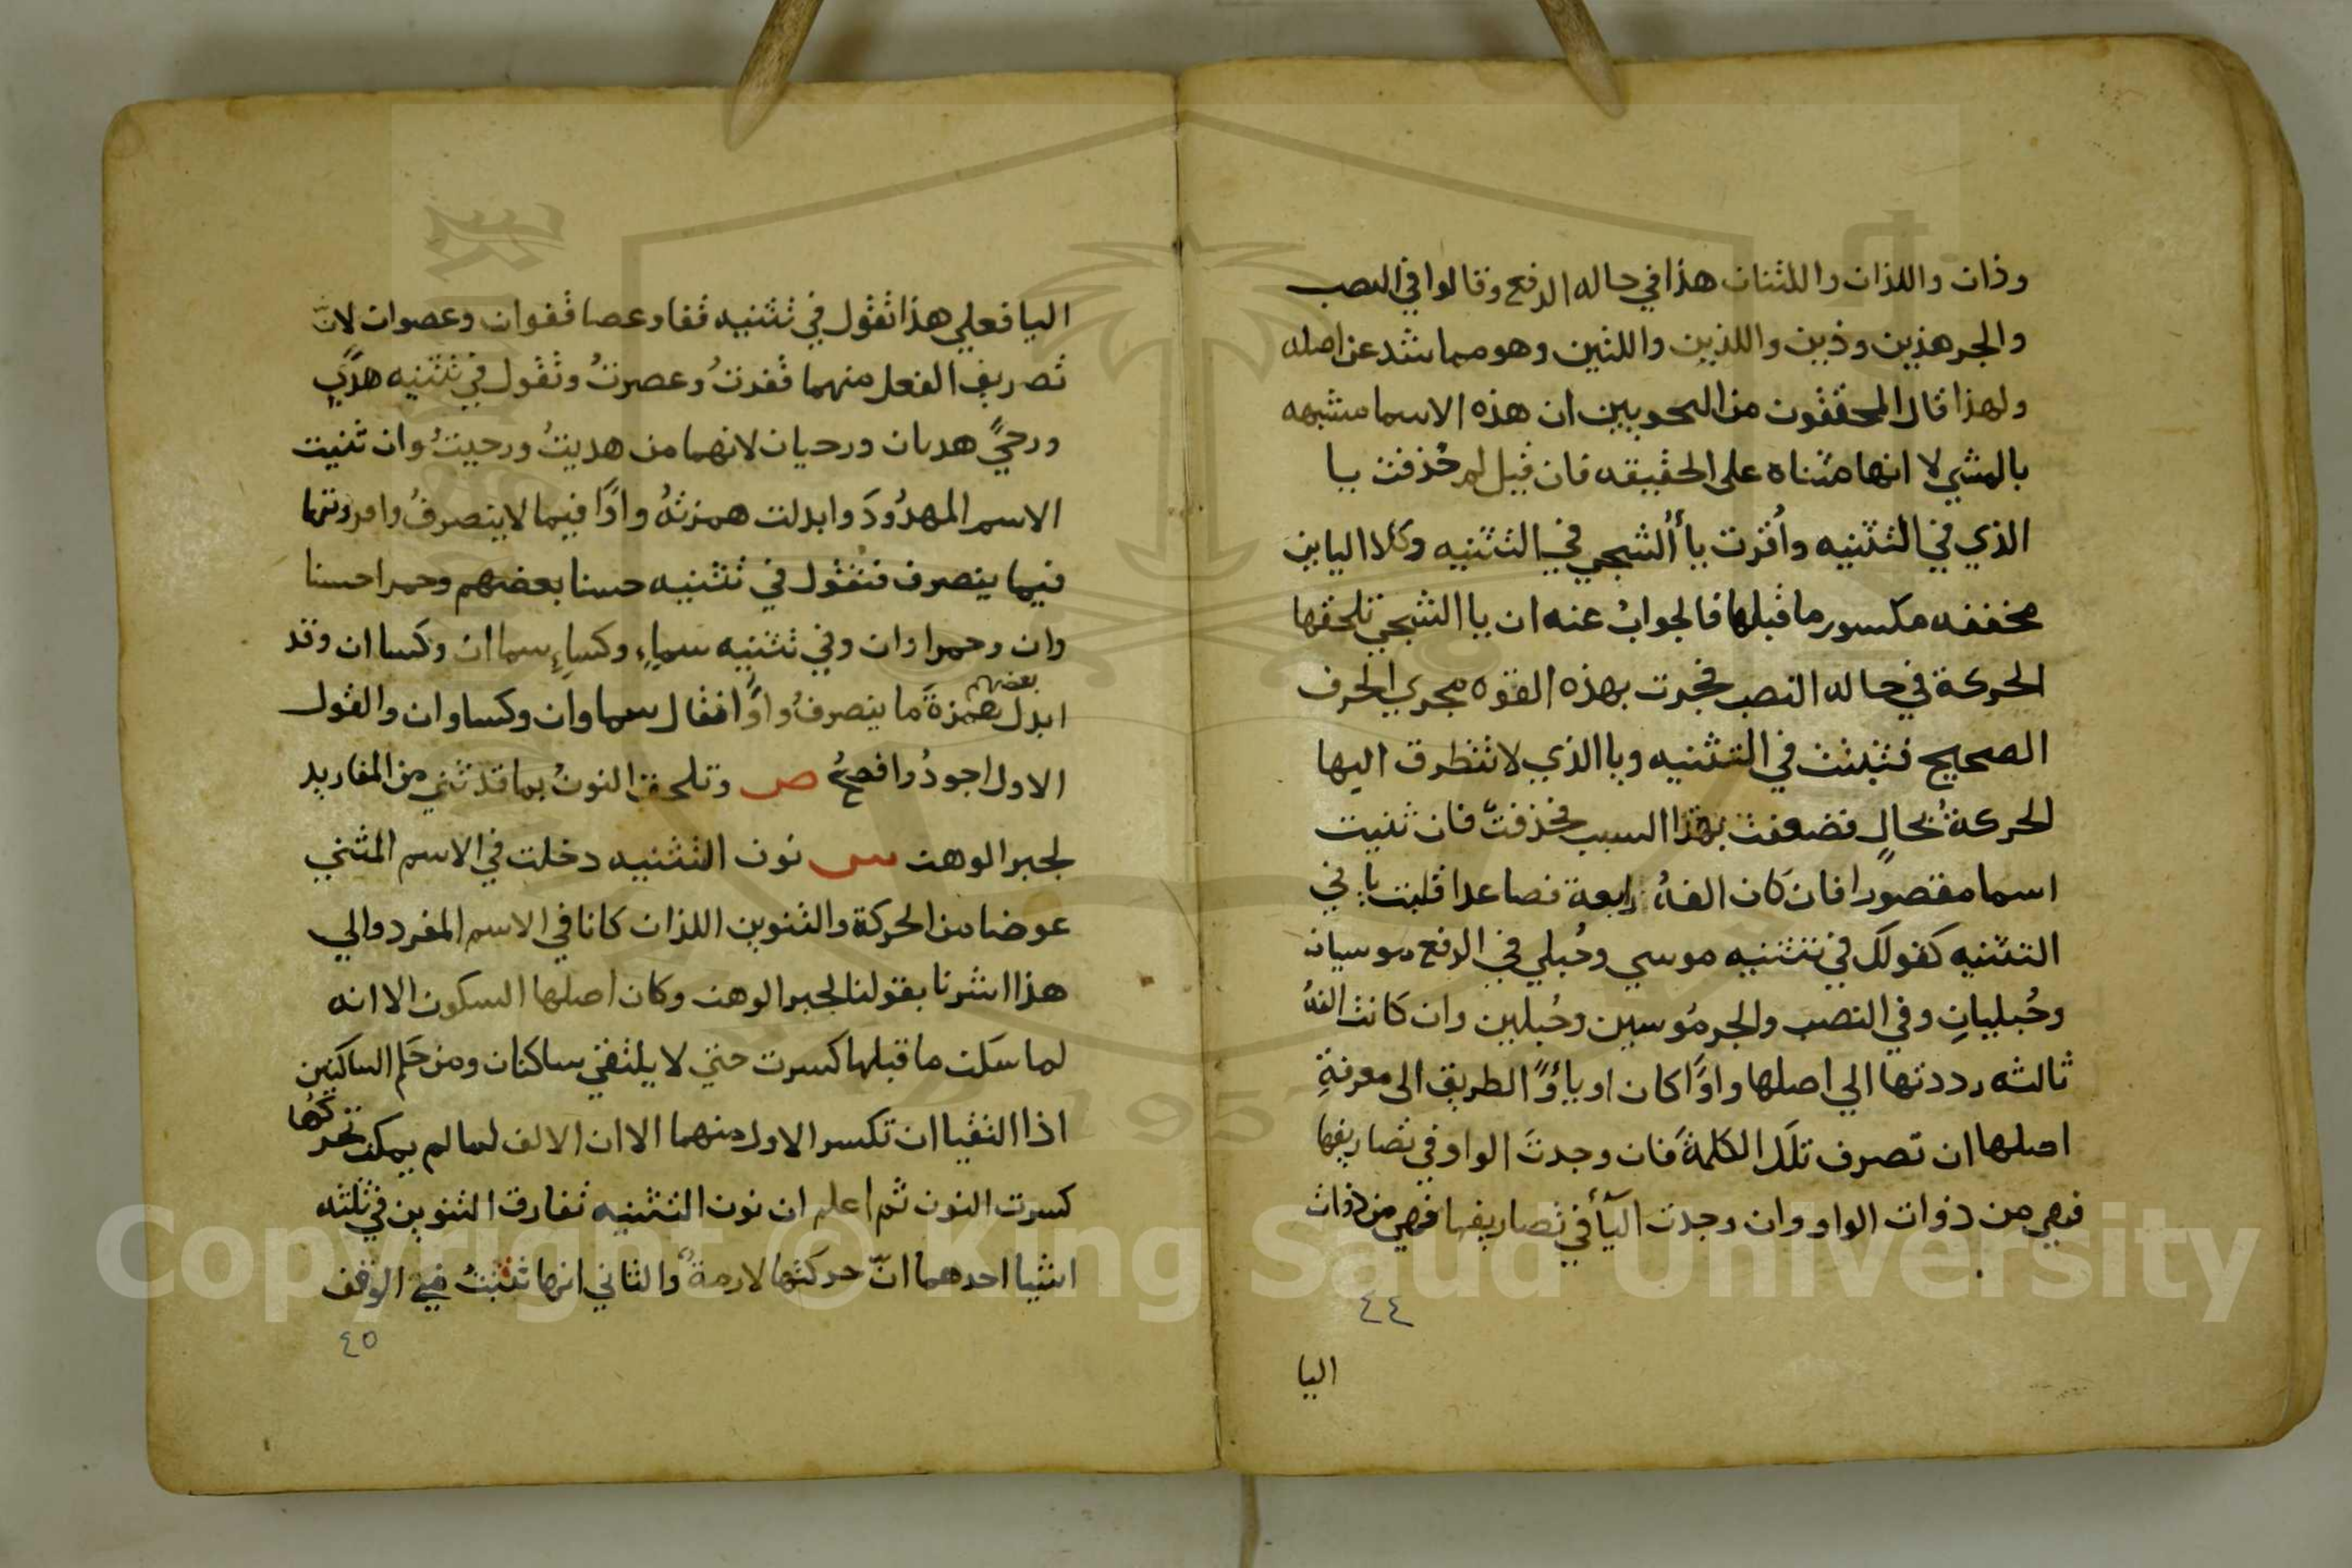 وذان واللذان واللتان هذا في حاله الرفع وقالوا في النصب
والجر هذين وذين واللذين واللتين وهو مما شد عن اصله
ولهذا قال المحققون من النحويين ان هذه الاسما مشبهه
بالمثني لا انها مثناه على الحقيقه فان قيل لم حُذفت يا
الذي في التثنيه واُقرت يا ٔالشجي في التثنيه وكلا اليايين
مخففه مكسور ما قبلها فالجوابُ عنه ان يا الشجي تلحقها
الحركة في حاله النصب فجرت بهذه القوه مجري الحرف
الصحيح فثبتت في التثنيه ويا الذي لا تتطرق اليها
الحركةُ بحالٍ فضعفت بهذا السبب فحذفتّ فان ثنيت
اسما مقصورا فان كان الفهُ رابعة فصاعدا قلبت يا في
التثنيه كقولك في تثنيه موسي وحُبلي في الرفع موسيان
وحُبليانِ وفي النصب والجر مُوسيين وحُبلين وان كانت الفهُ
ثالثه رددتها الي اصلها واوًا كان او ياؤً الطريق الى معرفةِ
اصلها ان تصرف تلك الكلمةَ فان وجدتَ الواو في تصاريفها
فهي من ذوات الواو وان وجدت اليآء في تصاريفها فهي من ذوات
٤٤
اليا
اليا فعلي هذا تقول في تثنيه قفا وعصا قفوان وعصوان لانّ
تصريف الفعل منهما قفوتُ وعصوتُ وتقول في تثنيه هدًي
ورحيً هديان ورحيان لانهما من هديتُ ورحيتُ وان ثنيت
الاسم المهدُودَ وابدلت همزتهُ واوًا فيما لا ينصرفُ وافردتها
فيما ينصرف فتقول في تثنيه حسنا بعضهم وحمرا حسنا
وان وحمراوان وفي تثنيه سماءٍ وكساءٍ سماان وكساان وقد
ابدل بعضهم همزةَ ما ينصرفُ واوًا فقال سماوان وكساوان والقول
الاول اجودُ وافصحُ ص وتلحق النونُ بما قد ثني من المفاريد
لجبر الوهن س نون التثنيه دخلت في الاسم المثني
عوضا من الحركة والتنوين اللذان كانا في الاسم المفرد والي
هذا اشرنا بقولنا لجبر الوهن وكان اصلها السكون الا انه
لما سكن ما قبلها كسرت حتي لا يلتقي ساكنان ومن حكم الساكنين
اذا التقيا ان تكسر الاول منهما الا ان الالف لما لم يمكن تحركها
كسرت النون ثم اعلم ان نون التثنيه تفارق التنوين في ثلثه
اشيا احدهما انّ حركتها لازمةٌ والثاني انها تثبتُ في الوقف
٤٥
Copyright © King Saud University
1957